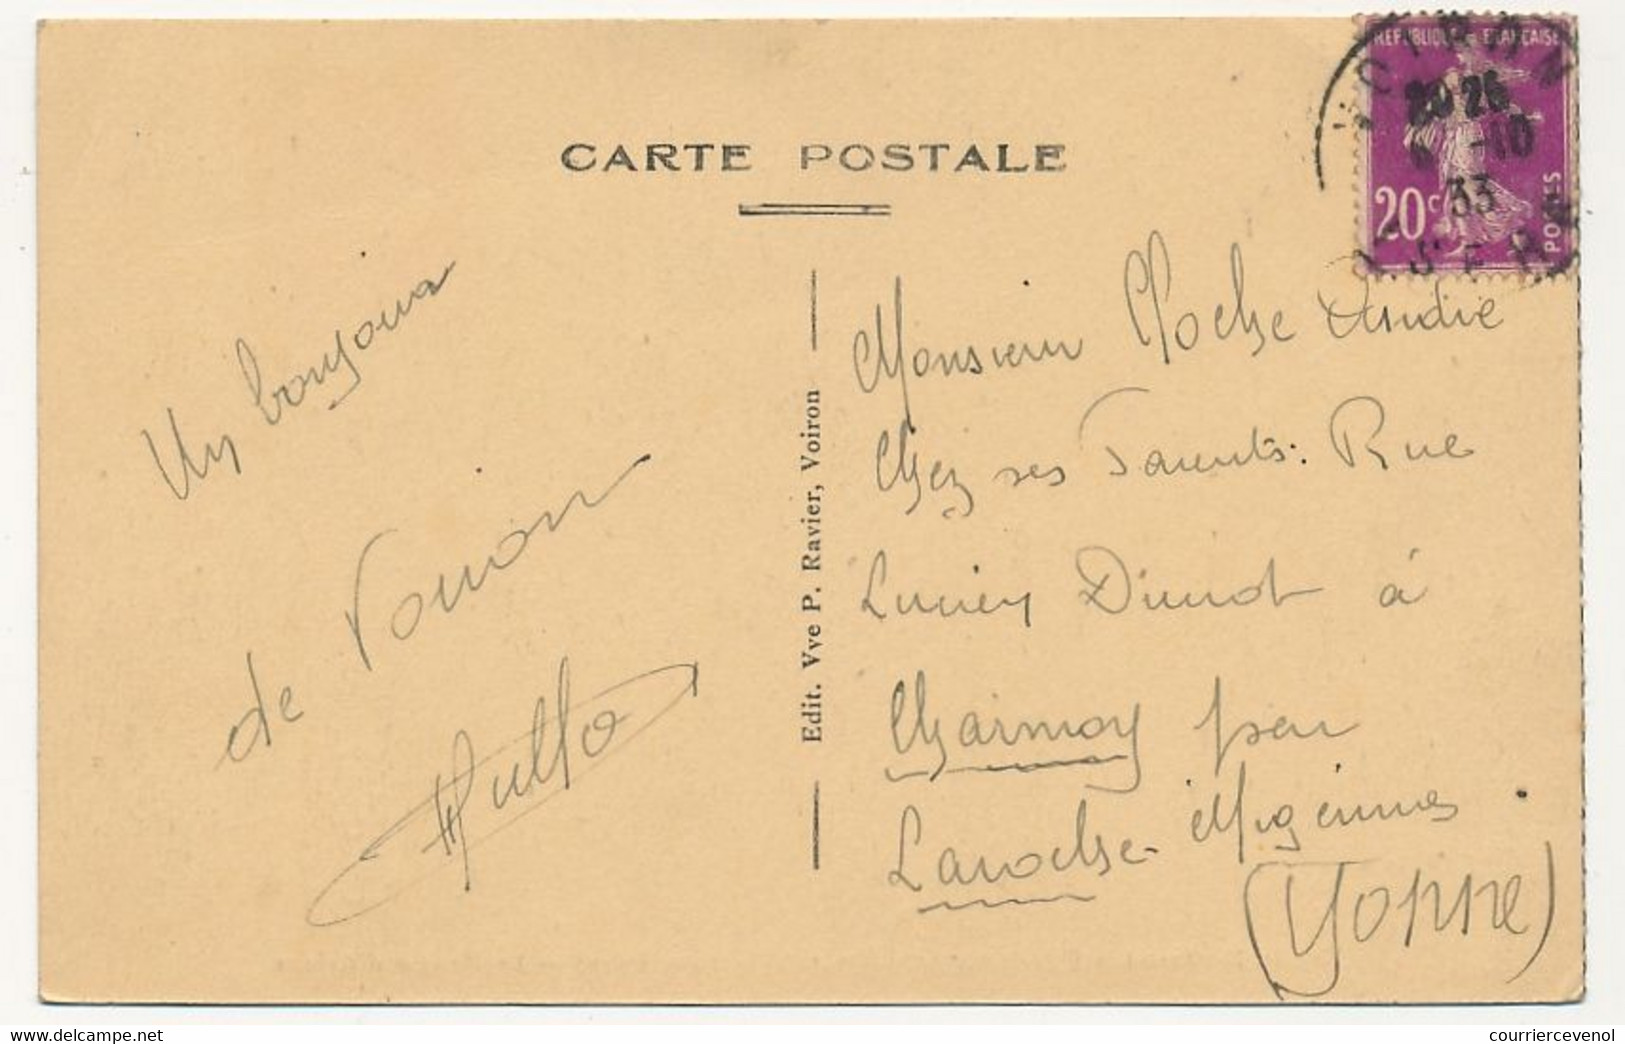 CARTE POSTALE
REPUBLIQUE FRANCAISE
20c
POSTES
VOIRON
20 26
-10
33
ISERE
Un bonjour
de Voiron
Edit. Vve P. Ravier, Voiron
Monsieur Roche André
Chez ses Parents. Rue
Lucien à
Charmoy par
Laroche-Migennes
(Yonne)
courriercevenol